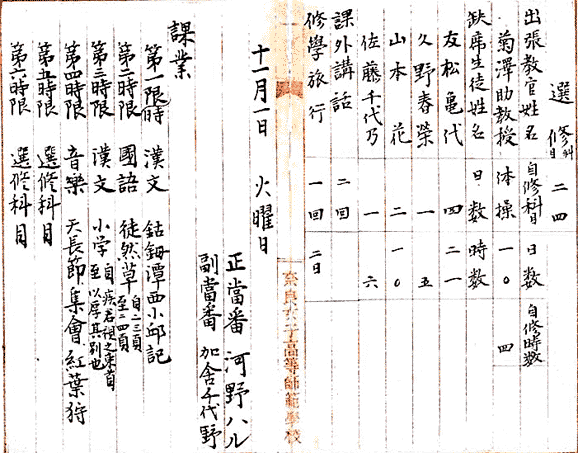 選修科目 二四
出張教官姓名 自修科目 日数 自修時数
菊澤助教授 体操 一〇 四
缺席生徒姓名 日数 時数
友松亀代 四 二一
久野春榮 一 五
山本花 二 一〇
佐藤千代乃 一 六
課外講話 二回
修學旅行 一回 二日
奈良女子高等師範學校
十一月一日 火曜日
正當番 河野ハル
副當番 加舎千代野
課業
第一時限 漢文 鈷鉧潭西小邱記
第二時限 國語 徒然草 自二三頁 至二四頁
第三時限 漢文 小学 自疾君視之東首 至以厚其別也
第四時限 音樂 天長節集會 紅葉狩
第五時限 選修科目
第六時限 選修科目